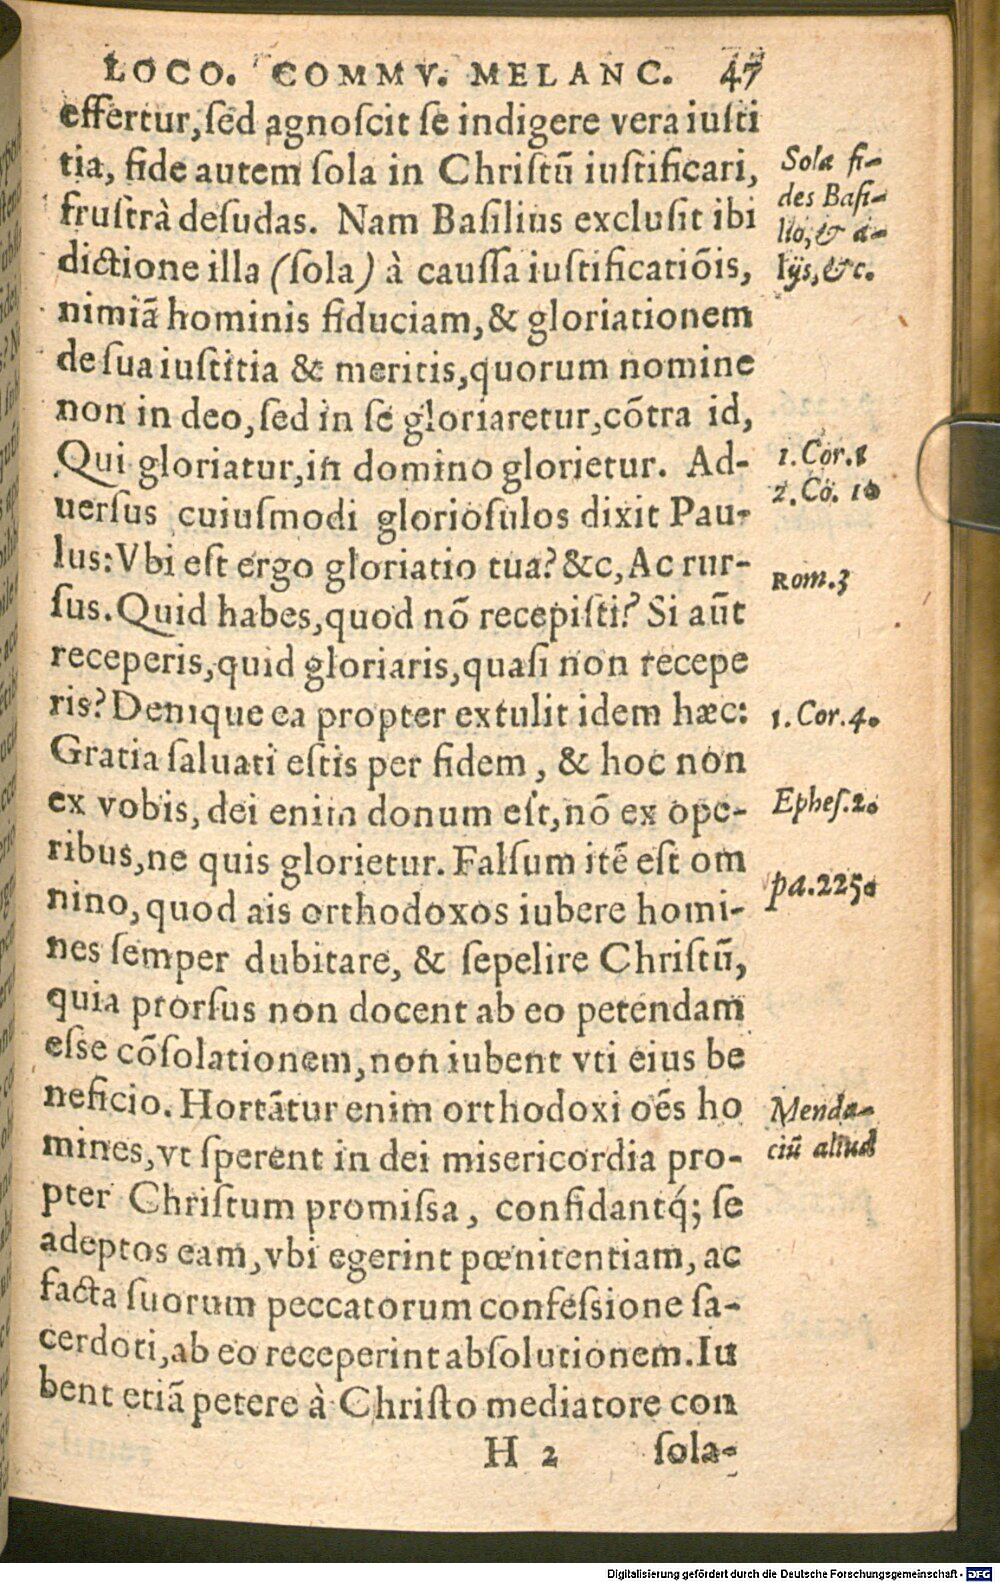 LOCO. COMMV. MELANC. 47
effertur, sed agnoscit se indigere vera iusti
tia, fide autem sola in Christũ iustificari,
frustrà desudas. Nam Basilius exclusit ibi
dictione illa (sola) à caussa iustificatiõis,
nimiã hominis fiduciam, & gloriationem
de sua iustitia & meritis, quorum nomine
non in deo, sed in se gloriaretur, cõtra id,
Qui gloriatur, in domino glorietur. Ad-
uersus cuiusmodi gloriosulos dixit Pau-
lus: Vbi est ergo gloriatio tua? &c, Ac rur-
sus. Quid habes, quod nõ recepisti? Si aũt
receperis, quid gloriaris, quasi non recepe
ris? Denique ea propter extulit idem hæc:
Gratia saluati estis per fidem, & hoc non
ex vobis, dei enim donum est, nõ ex ope-
ribus, ne quis glorietur. Falsum itẽ est om
nino, quod ais orthodoxos iubere homi-
nes semper dubitare, & sepelire Christũ,
quia prorsus non docent ab eo petendam
esse cõsolationem, non iubent vti eius be
neficio. Hortãtur enim orthodoxi oẽs ho
mines, vt sperent in dei misericordia pro-
pter Christum promissa, confidantq́; se
adeptos eam, vbi egerint pœnitentiam, ac
facta suorum peccatorum confessione sa-
cerdoti, ab eo receperint absolutionem. Iu
bent etiã petere à Christo mediatore con
H 2 sola-
Sola fi-
des Basi-
lio, & a-
lijs, &c.
1. Cor. 1
2. Co. 10
Rom. 3
1. Cor. 4.
Ephes. 2.
pa. 225.
Menda-
ciũ aliud
Digitalisierung gefördert durch die Deutsche Forschungsgemeinschaft - DFG